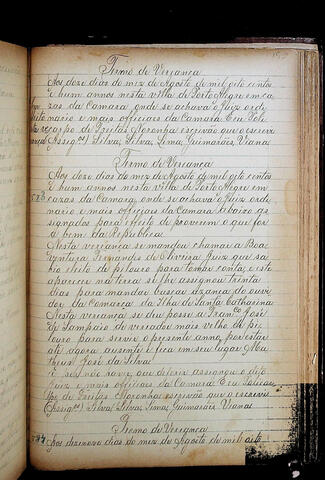 Termo de Veriança
Aos doze dias do mez de Agosto de mil oito centos
e hum annos nesta villa de Porto Alegre em ca-
zas da Camara onde se achava o Juiz orde
nario e mais officiaes da Camara Eu Poli
carpo de Freitas Noronha escrivão que o escrevi
Assignos/ Silva, Silva, Lima, Guimarães, Viana
Termo de Veriança
Aos doze dias do mez de Agosto de mil oito centos
e hum annos nesta villa de Porto Alegre em
cazas da Camara onde se achava o Juiz ordi
nario e mais officiaes da Camara abaixo as
signados para effeito de proverem o que for
a bem da Republica
Nesta veriança se mandou chamar a Boa
ventura Fernandes de Oliveira Juiz que sa
hio eleito de pilouro para tempo conta; este
aparecer na terra se lhe assignou trinta
dias para mandar buscar uzança do ouvi
dor da Comarca da Ilha de Santa Catharina
Nesta veriança se deu posse a Franco José
de Sampaio de vereador mais velho de pi
louro para servir o presente anno, por estar
até agora auzente e fica em seu lugar Ma
theus José da Silva
e se não houve que deferir assignou o dito
Juiz e mais officiaes da Camara Eu Policar
po de Freitas Noronha escrivão que o escrevi
Assignos/ Silva, Silva, Lima, Guimarães Viana
Termo de Veriança
Aos dezenove dias do mez de Agosto de mil oito